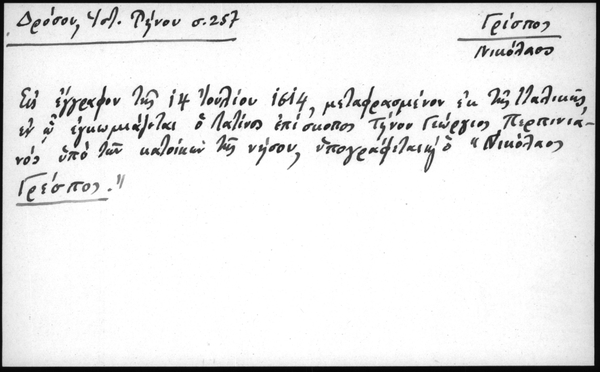 Δρόσου, Ἱστ. Τήνου σ. 257
Γρέσπος
Νικόλαος
Εἰς ἔγγραφον τῆς 14 Ἰουλίου 1614, μεταφρασμένον ἐκ τῆς Ἰταλικῆς,
ἐν ᾧ ἐγκωμιάζεται ὁ λατῖνος ἐπίσκοπος Τήνου Γεώργιος Περπινιά-
νός ὑπό τῶν κατοίκων τῆς νήσου, ὑπογράφεται ὁ "Νικόλαος
Γρέσπος."